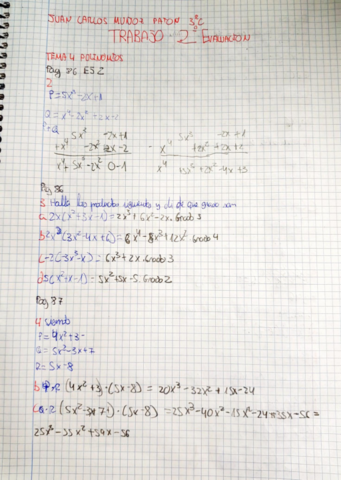 JUAN CARLOS MUÑOZ PATON 3ºC
TRABAJO - 2ª EVALUACION
TEMA 4 POLINOMIOS
Pag 86 ES 2
2
P=5x²-2x+1
5x² -2x+1
+x⁴ -2x²+2x-2
x⁴+5x³-2x² 0-1
Pag 86
3 Halla los productos siguiente y di de que grado son
a 2x(x²+3x-1)=2x³+6x²-2x. Grado 3
b 2x²(3x²-4x+6)=6x⁴-8x³+12x². Grado 4
c -2(-3x³-x)=6x³+2x. Grado 3
d 5(x²+x-1)=5x²+5x-5. Grado 2
Pag 87
4
P=4x²+3
Q=5x²-3x+7
2=5x-8
b (4x²+3)·(5x-8)=20x³-32x²+15x-24
(5x²-3x+7)·(5x-8)=25x³-40x²-15x²-24x+35x-56=
25x³-55x²+59x-56